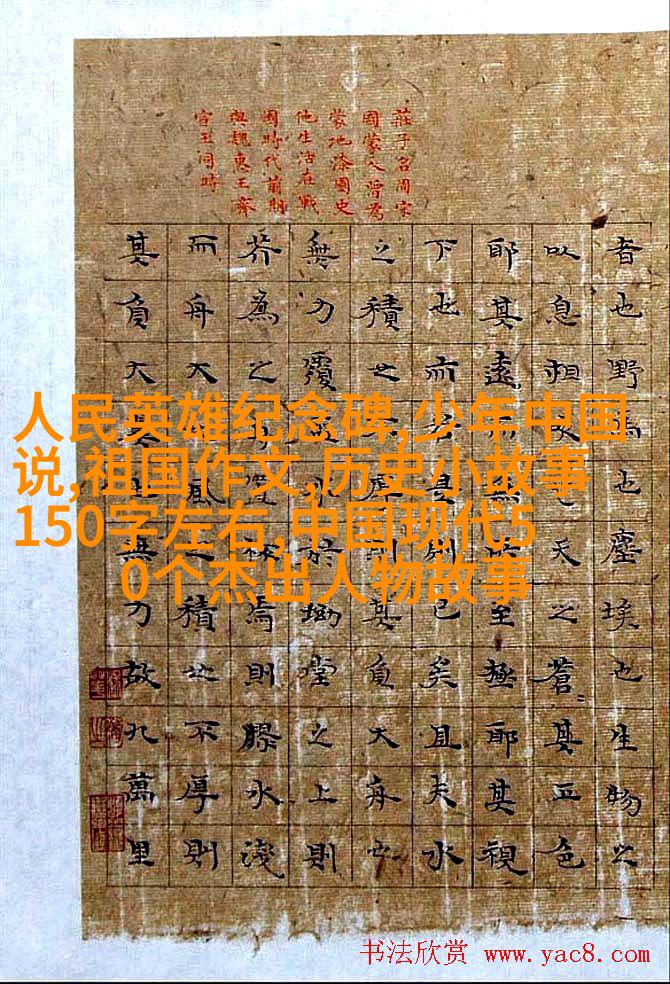 莊子名周宋
國蒙人曾為
蒙地漆園史
他生活在戰
國時代前期
與魏惠王齊
宣王同時
者也野馬也塵埃也生物之
以息相吹也天之蒼〃其正色
耶其遠而無所至極耶其視
下也而若是則已矣且夫水
之積也不厚則其負大舟也
無力覆盃水於坳堂之上則
芥為之舟置杯焉則膠水淺
而舟大也風之積也不厚則
其負大翼也無力故九萬里
人民英雄纪念碑,少年中国
说,祖国作文,历史小故事
150字左右,中国现代5
0个杰出人物故事
书法欣赏 www.yac8.com